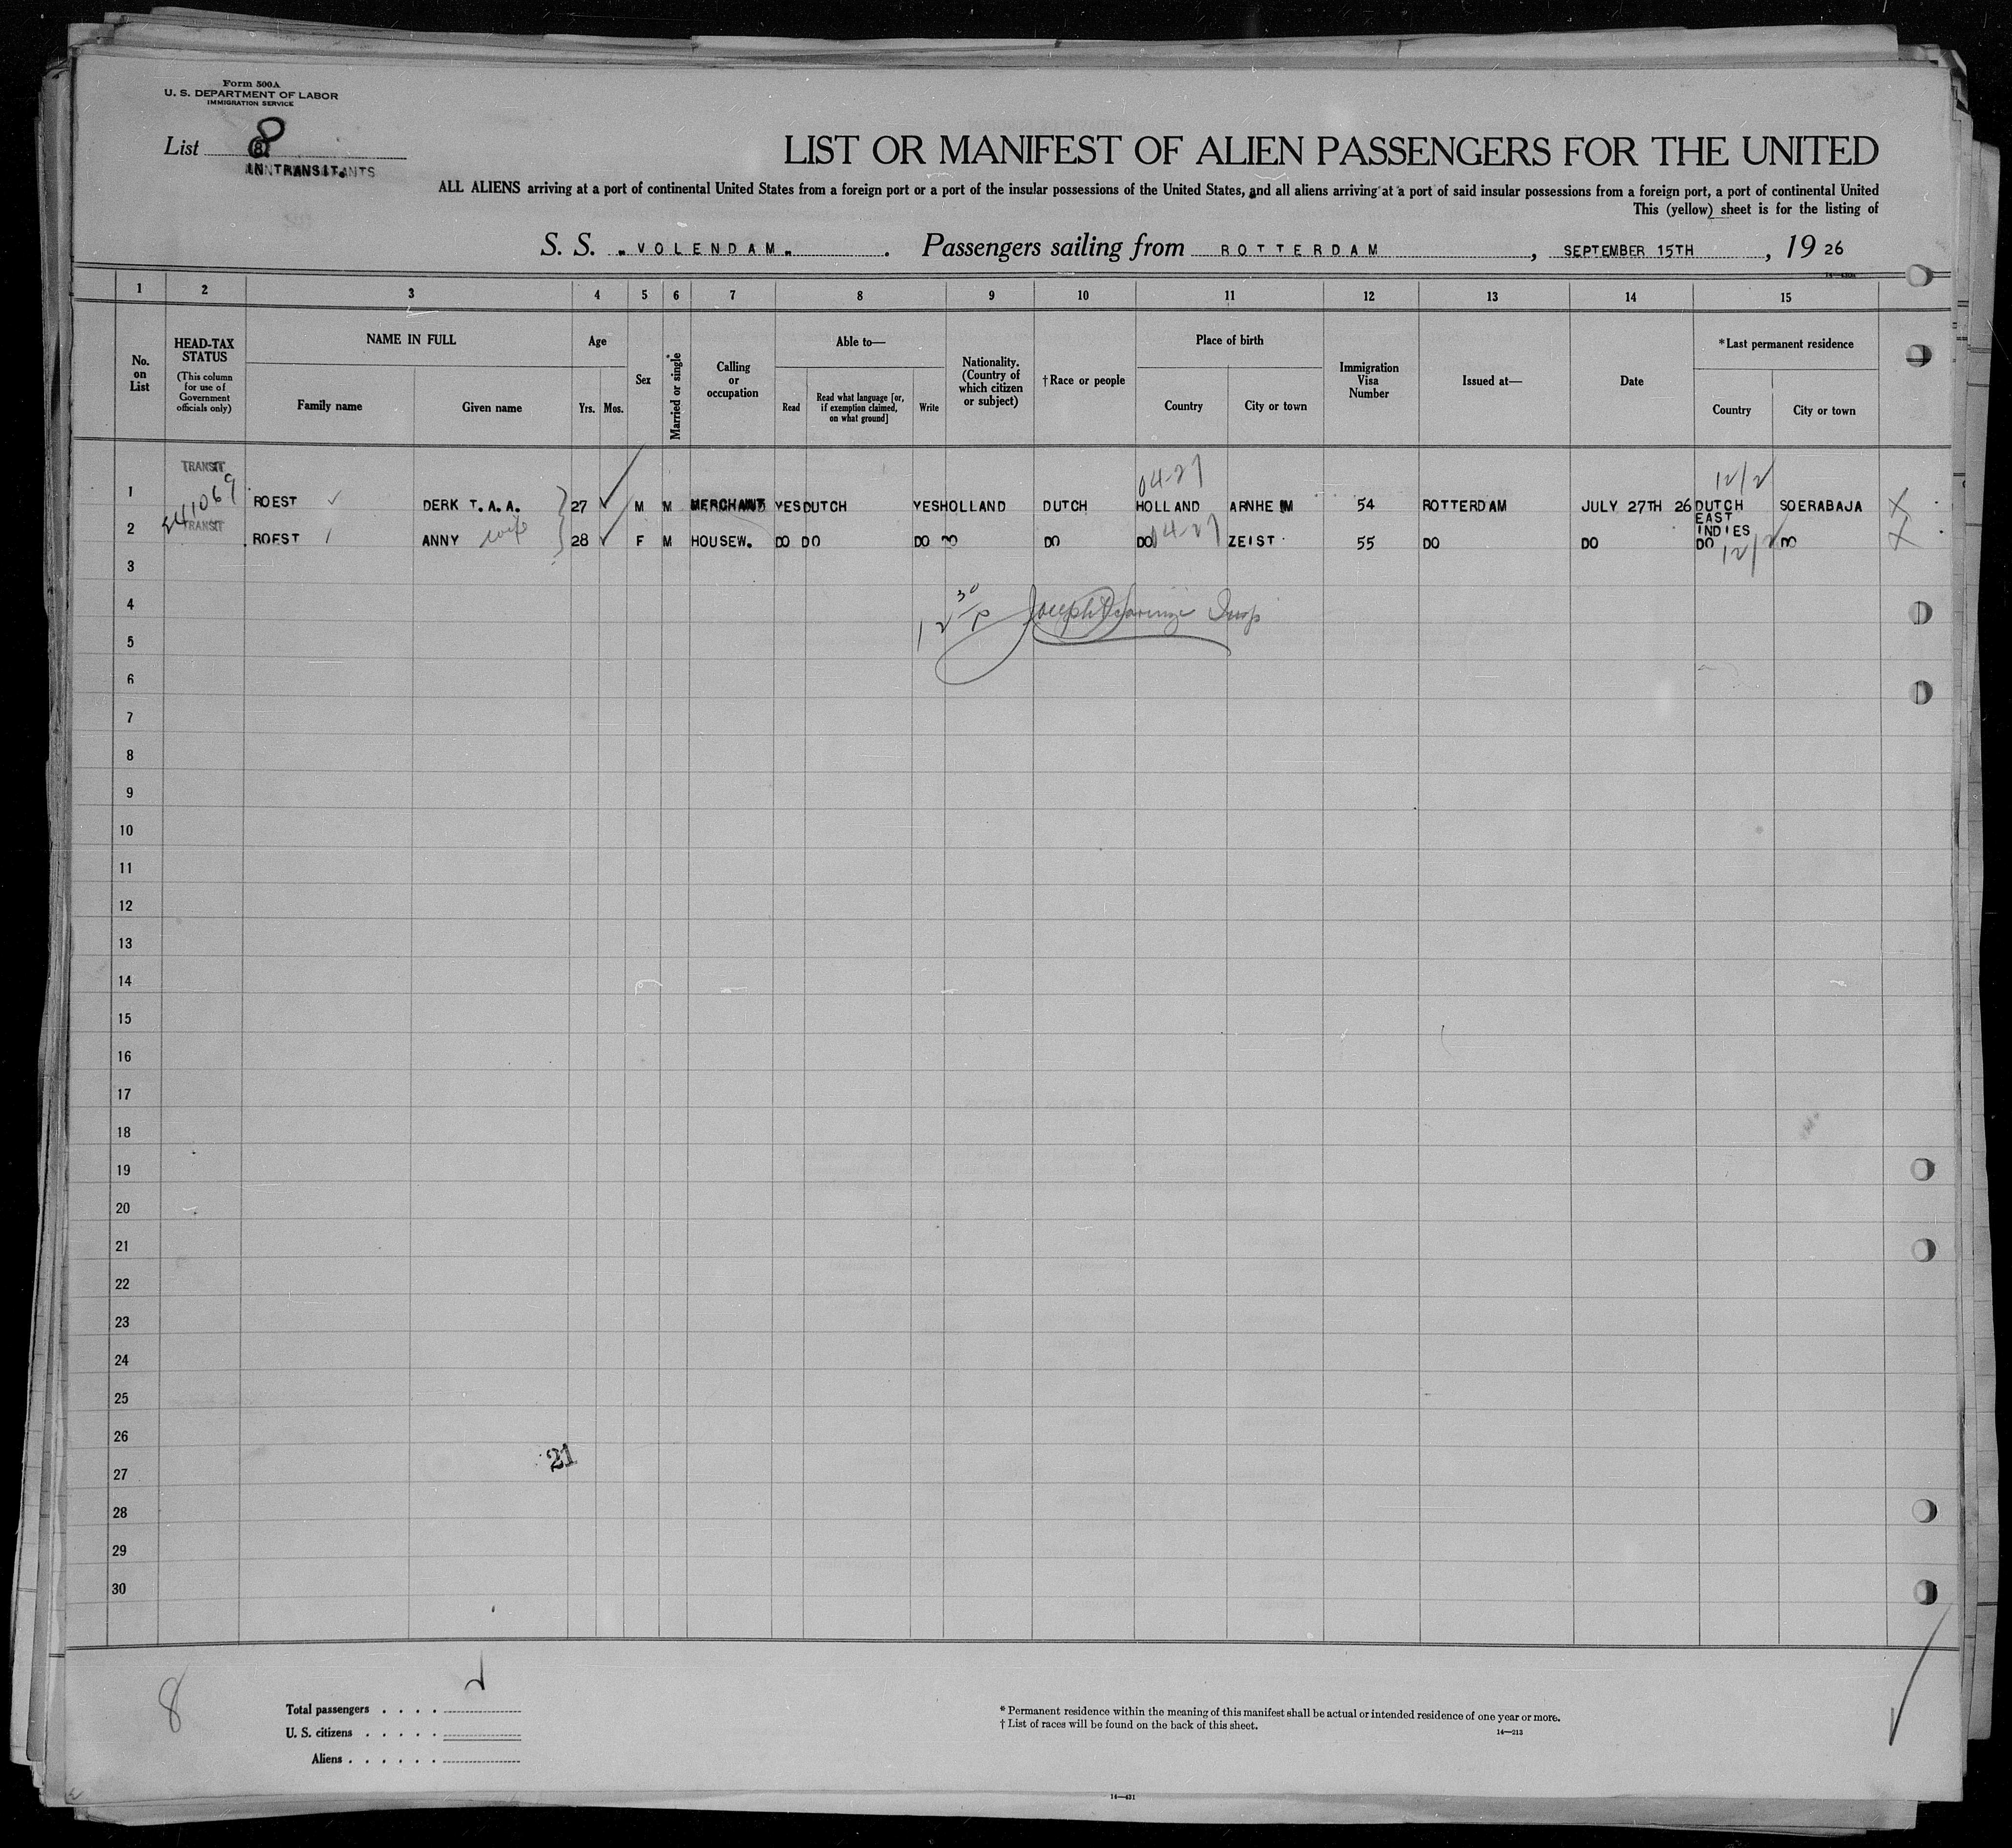 Form 500A
U. S. DEPARTMENT OF LABOR
IMMIGRATION SERVICE
List 8
IN TRANSIT.
LIST OR MANIFEST OF ALIEN PASSENGERS FOR THE UNITED
ALL ALIENS arriving at a port of continental United States from a foreign port or a port of the insular possessions of the United States, and all aliens arriving at a port of said insular possessions from a foreign port, a port of continental United
This (yellow) sheet is for the listing of
S. S. "VOLENDAM". Passengers sailing from ROTTERDAM, SEPTEMBER 15TH, 1926
1 2 3 4 5 6 7 8 9 10 11 12 13 14 15
No. on List
HEAD-TAX STATUS
(This column for use of Government officials only)
NAME IN FULL
Family name
Given name
Age
Yrs. Mos.
Sex
Married or single*
Calling or occupation
Able to—
Read
Read what language [or, if exemption claimed, on what ground]
Write
Nationality. (Country of which citizen or subject)
†Race or people
Place of birth
Country
City or town
Immigration Visa Number
Issued at—
Date
*Last permanent residence
Country
City or town
TRANSIT 04-27 12/2
1 241069 ROEST DERK T.A.A. 27 M M MERCHANT YES DUTCH YES HOLLAND DUTCH HOLLAND ARNHEM 54 ROTTERDAM JULY 27TH 26 DUTCH EAST INDIES SOERABAJA X
2 TRANSIT ROEST ANNY wife 28 F M HOUSEW. DO DO DO DO DO DO 04-27 ZEIST 55 DO DO DO 12/2 DO X
3
4
5
6
7
8
9
10
11
12
13
14
15
16
17
18
19
20
21
22
23
24
25
26
21
27
28
29
30
8
Total passengers . . . .
U. S. citizens . . . . .
Aliens . . . . . .
* Permanent residence within the meaning of this manifest shall be actual or intended residence of one year or more.
† List of races will be found on the back of this sheet.
14—213
14—431